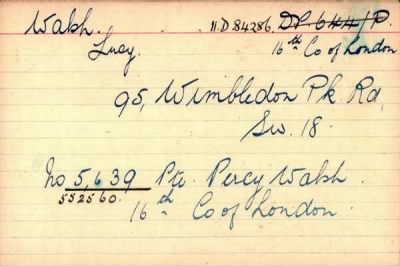 Walsh. 11.D 84286. DP 644/P.
Lucy. 16th Co of London
95, Wimbledon Pk Rd,
Sw. 18.
No 5,639 Pte. Percy Walsh.
552560. 16th Co of London.